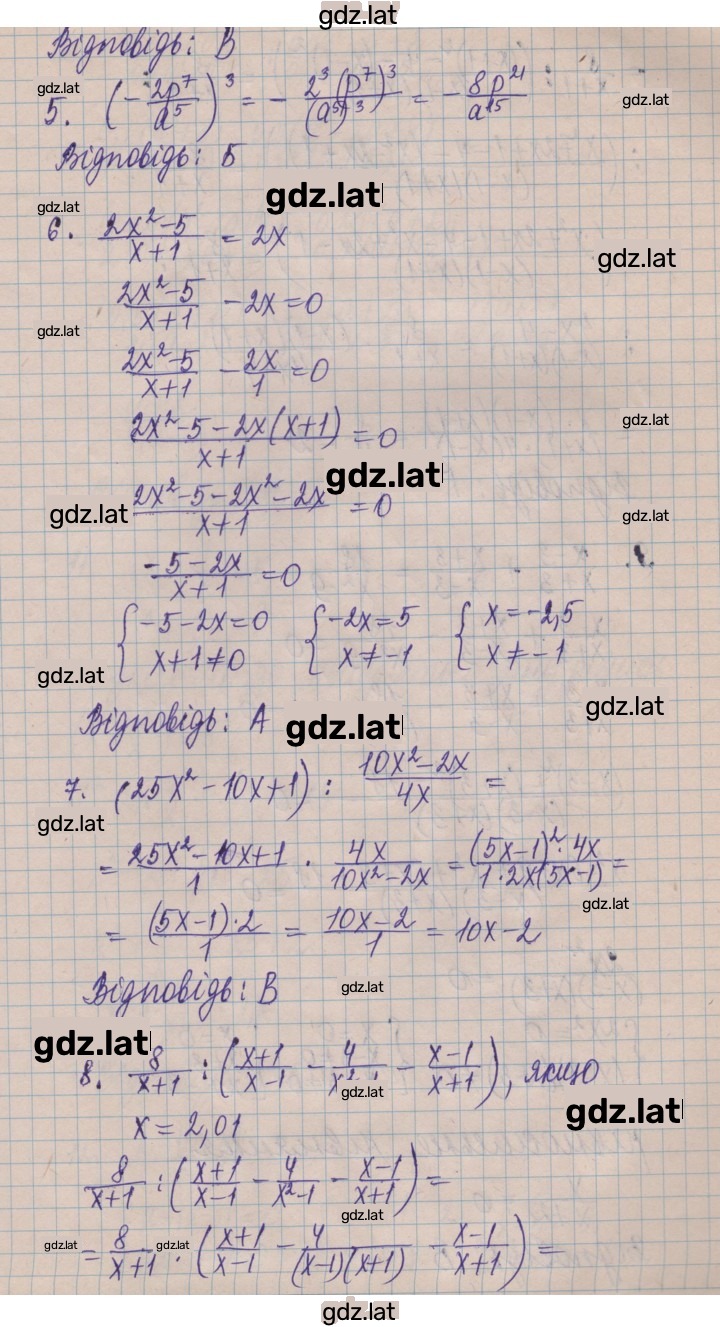 gdz.lat
Відповідь: В
gdz.lat
5. (-2p⁷/a⁵)³ = -2³(p⁷)³/(a⁵)³ = -8p²¹/a¹⁵ gdz.lat
Відповідь: Б
gdz.lat
gdz.lat
6. (2x²-5)/(x+1) = 2x
gdz.lat
(2x²-5)/(x+1) - 2x = 0
gdz.lat
(2x²-5)/(x+1) - 2x/1 = 0
(2x²-5-2x(x+1))/(x+1) = 0 gdz.lat
gdz.lat
gdz.lat (2x²-5-2x²-2x)/(x+1) = 0 gdz.lat
(-5-2x)/(x+1) = 0
{ -5-2x=0 { -2x=5 { x=-2,5
x+1≠0 x≠-1 x≠-1
gdz.lat
gdz.lat
Відповідь: А gdz.lat
7. (25x²-10x+1) : (10x²-2x)/4x =
gdz.lat
= (25x²-10x+1)/1 · 4x/(10x²-2x) = ((5x-1)²·4x)/(1·2x(5x-1)) =
gdz.lat
= ((5x-1)·2)/1 = (10x-2)/1 = 10x-2
Відповідь: В gdz.lat
gdz.lat
8. 8/(x+1) : ((x+1)/(x-1) - 4/(x²-1) - (x-1)/(x+1)), якщо
gdz.lat
gdz.lat
x = 2,01
8/(x+1) : ((x+1)/(x-1) - 4/(x²-1) - (x-1)/(x+1)) =
gdz.lat
gdz.lat = 8/(x+1) gdz.lat : ((x+1)/(x-1) - 4/((x-1)(x+1)) - (x-1)/(x+1)) =
gdz.lat